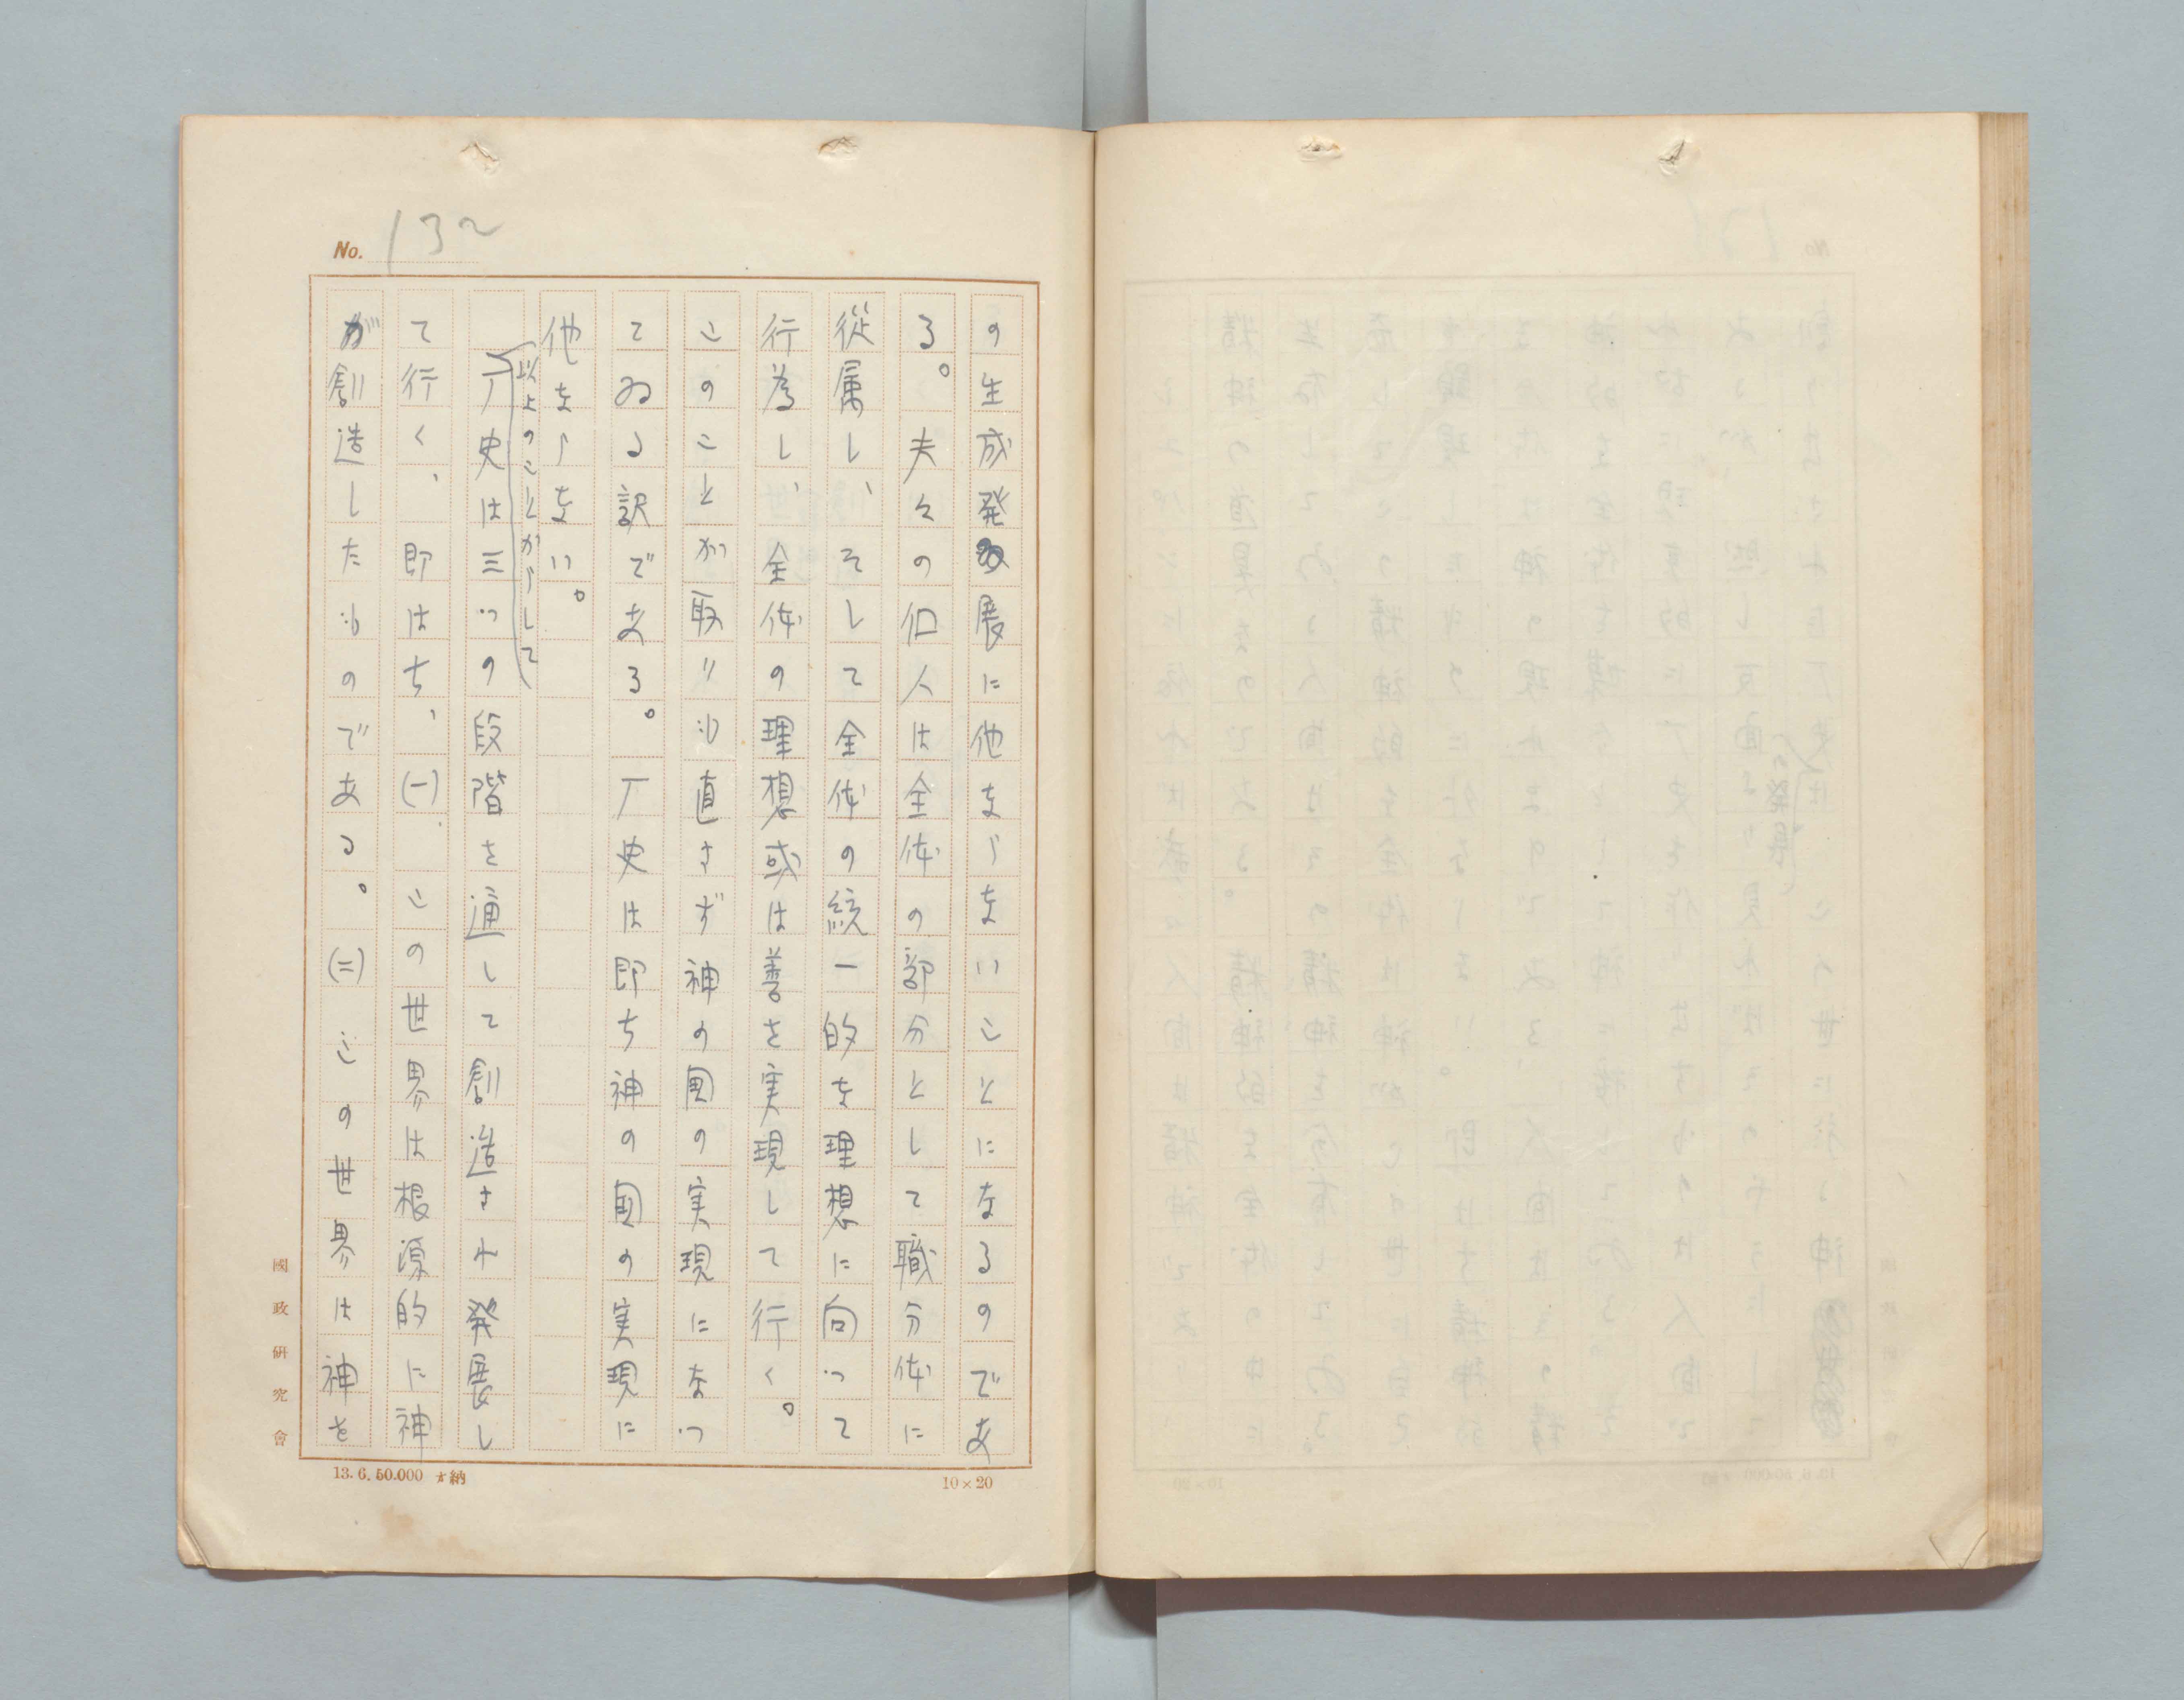 No. 132
の生成発展に他ならないことになるのであ
る。夫々の個人は全体の部分として職分体に
従属し、そして全体の統一的な理想に向つて
行為し、全体の理想或は善を実現して行く。
このことが取りも直さず神の国の実現になつ
てゐる訳である。厂史は即ち神の国の実現に
他ならない。
以上のことからして
厂史は三つの段階を通して創造され発展し
て行く、即はち、(一)、この世界は根源的に神
が創造したものである。(二)この世界は神を
國政研究會
13.6.50.000 納
10×20